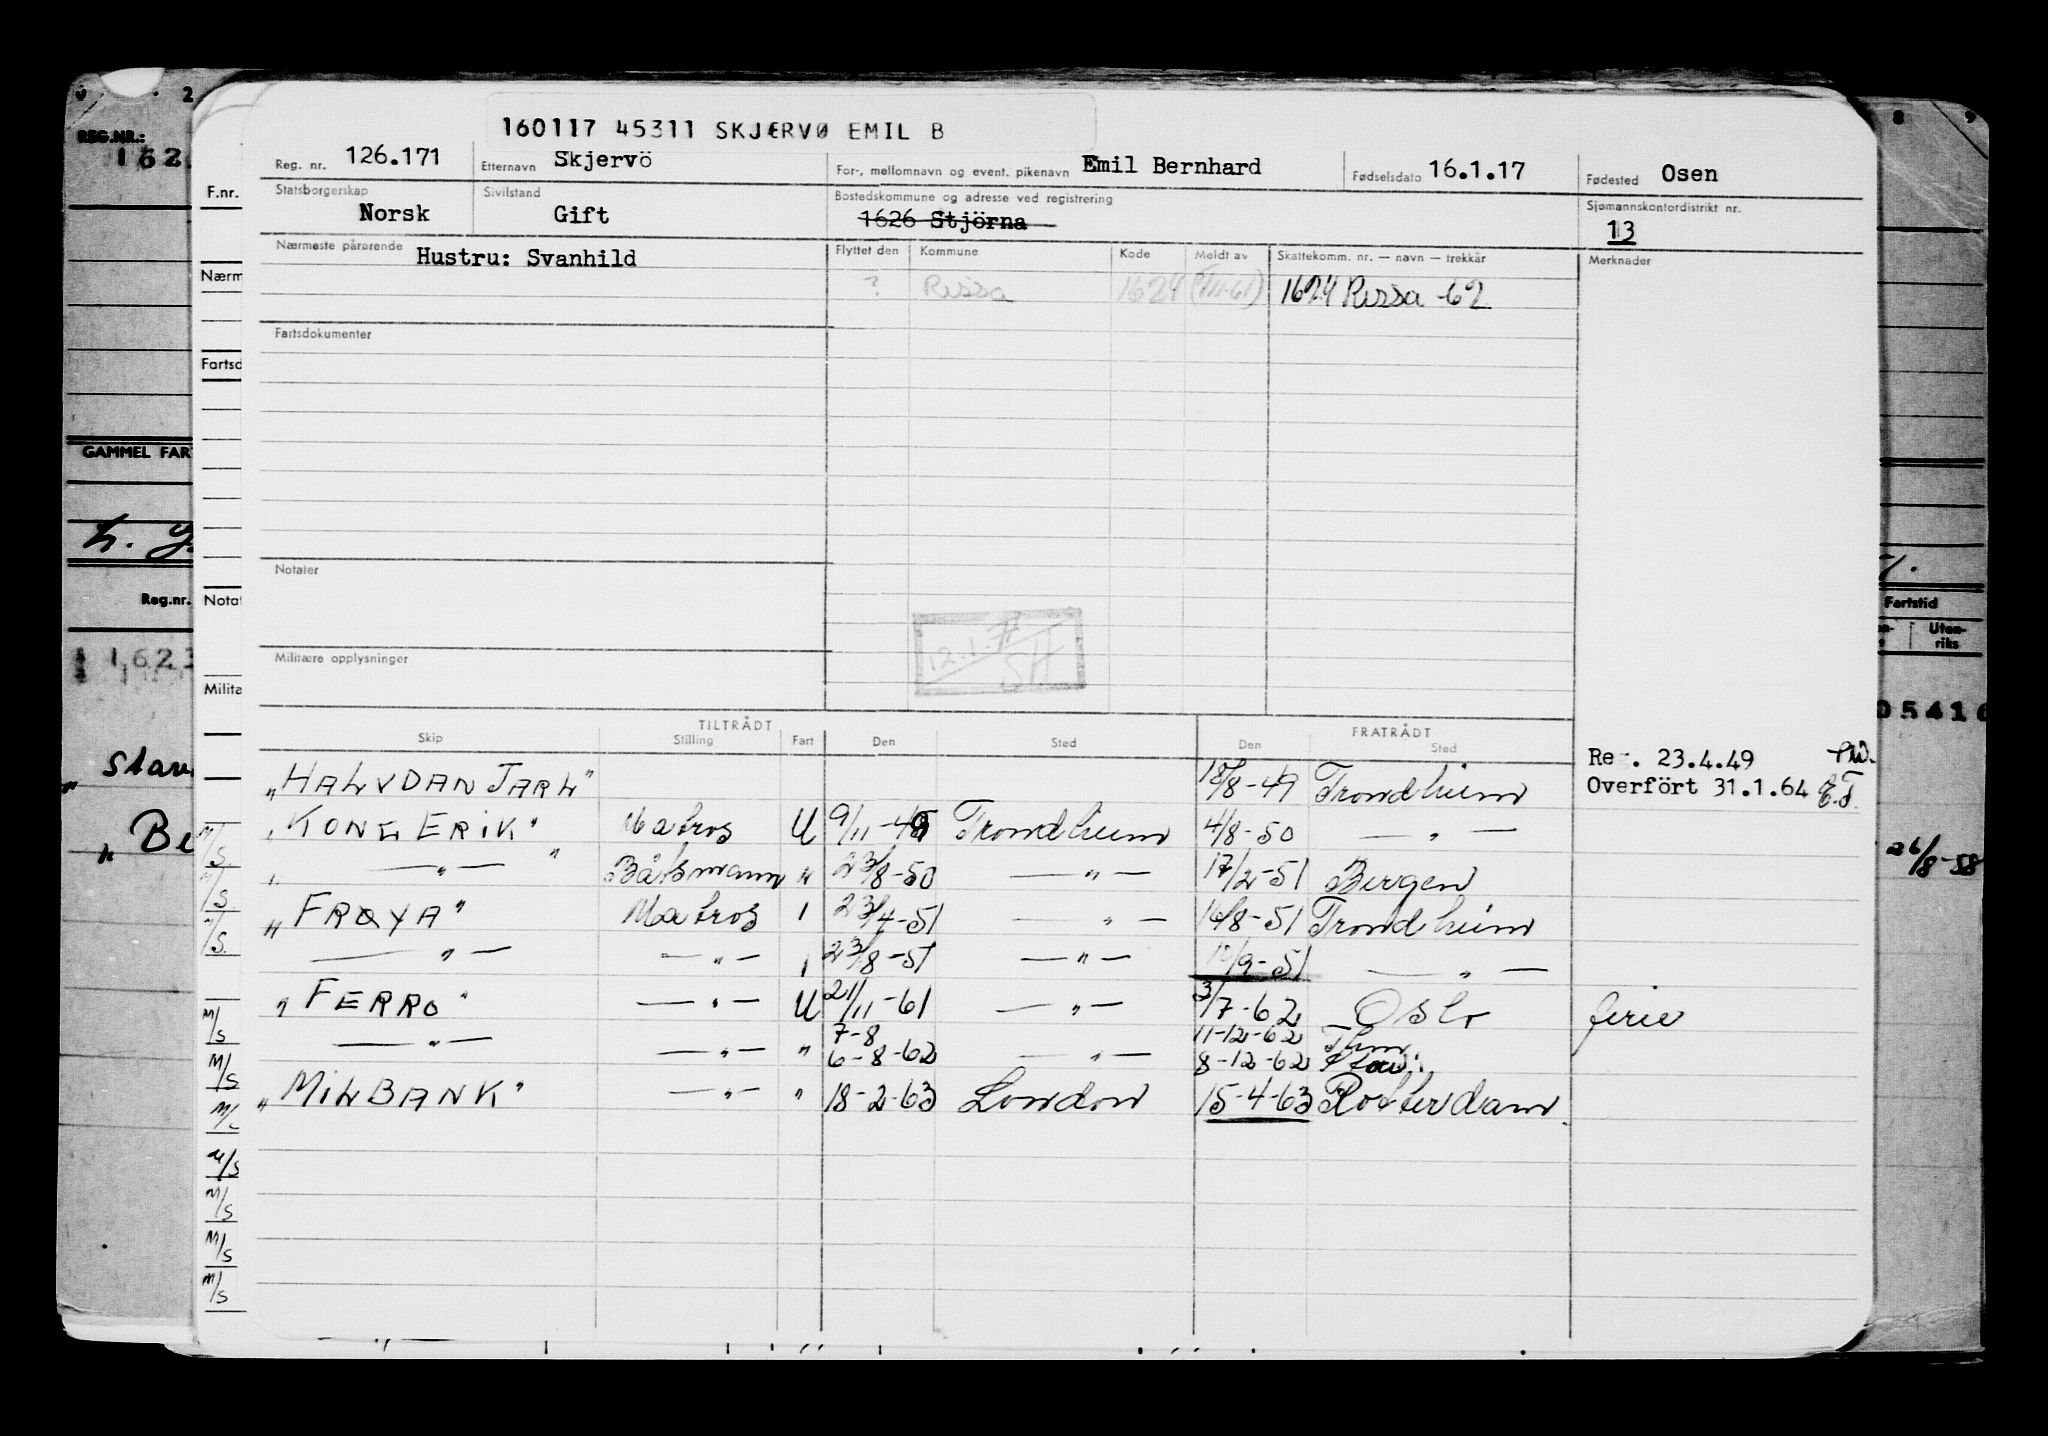 160117 45311 SKJERVØ EMIL B
Reg. nr. 126.171 Etternavn Skjervö For-, mellomnavn og event. pikenavn Emil Bernhard Fødselsdato 16.1.17 Fødested Osen
Statsborgerskap Norsk Sivilstand Gift Bostedskommune og adresse ved registrering 1626 Stjörna Sjømannskontordistrikt nr. 13
Nærmeste pårørende Hustru: Svanhild Flyttet den Kommune Kode Meldt av Skattekomm. nr. — navn — trekkår Merknader
? Rissa 1624 1624 Rissa -62
Fartsdokumenter
Notater
12.1.71
SH
Militære opplysninger
TILTRÅDT FRATRÅDT
Skip Stilling Fart Den Sted Den Sted
Re . 23.4.49
Overfört 31.1.64 E.T.
"HALVDAN JARL" 18/8-49 Trondheim
"KONG ERIK" Matros U 9/11-49 Trondheim 4/8-50 — " —
— " — " Båtsmann " 23/8-50 — " — 17/2-51 Bergen
"FRØYA" Matros 23/4-51 — " — 16/8-51 Trondheim
— " — — " — 23/8-51 — " — /9-51 — " —
"FERRO" — " — U 21/11-61 — " — 3/7-62 Oslo ferie
7-8 11-12-62 Thm
— " — — " — " 6-8-62 — " — 8-12-62
"MILBANK" — " — " 18-2-63 London 15-4-63 Rotterdam
REG.NR.:
162
GAMMEL FAR
Reg.nr.
1623
Stav
Be
F.nr.
Nærm
Fartsd
Notat
Milita
M/S
M/S
M/S
M/S
M/S
M/S
M/S
M/S
M/S
2
8 9
Fartstid
Uten-
riks
05416
26/8-58